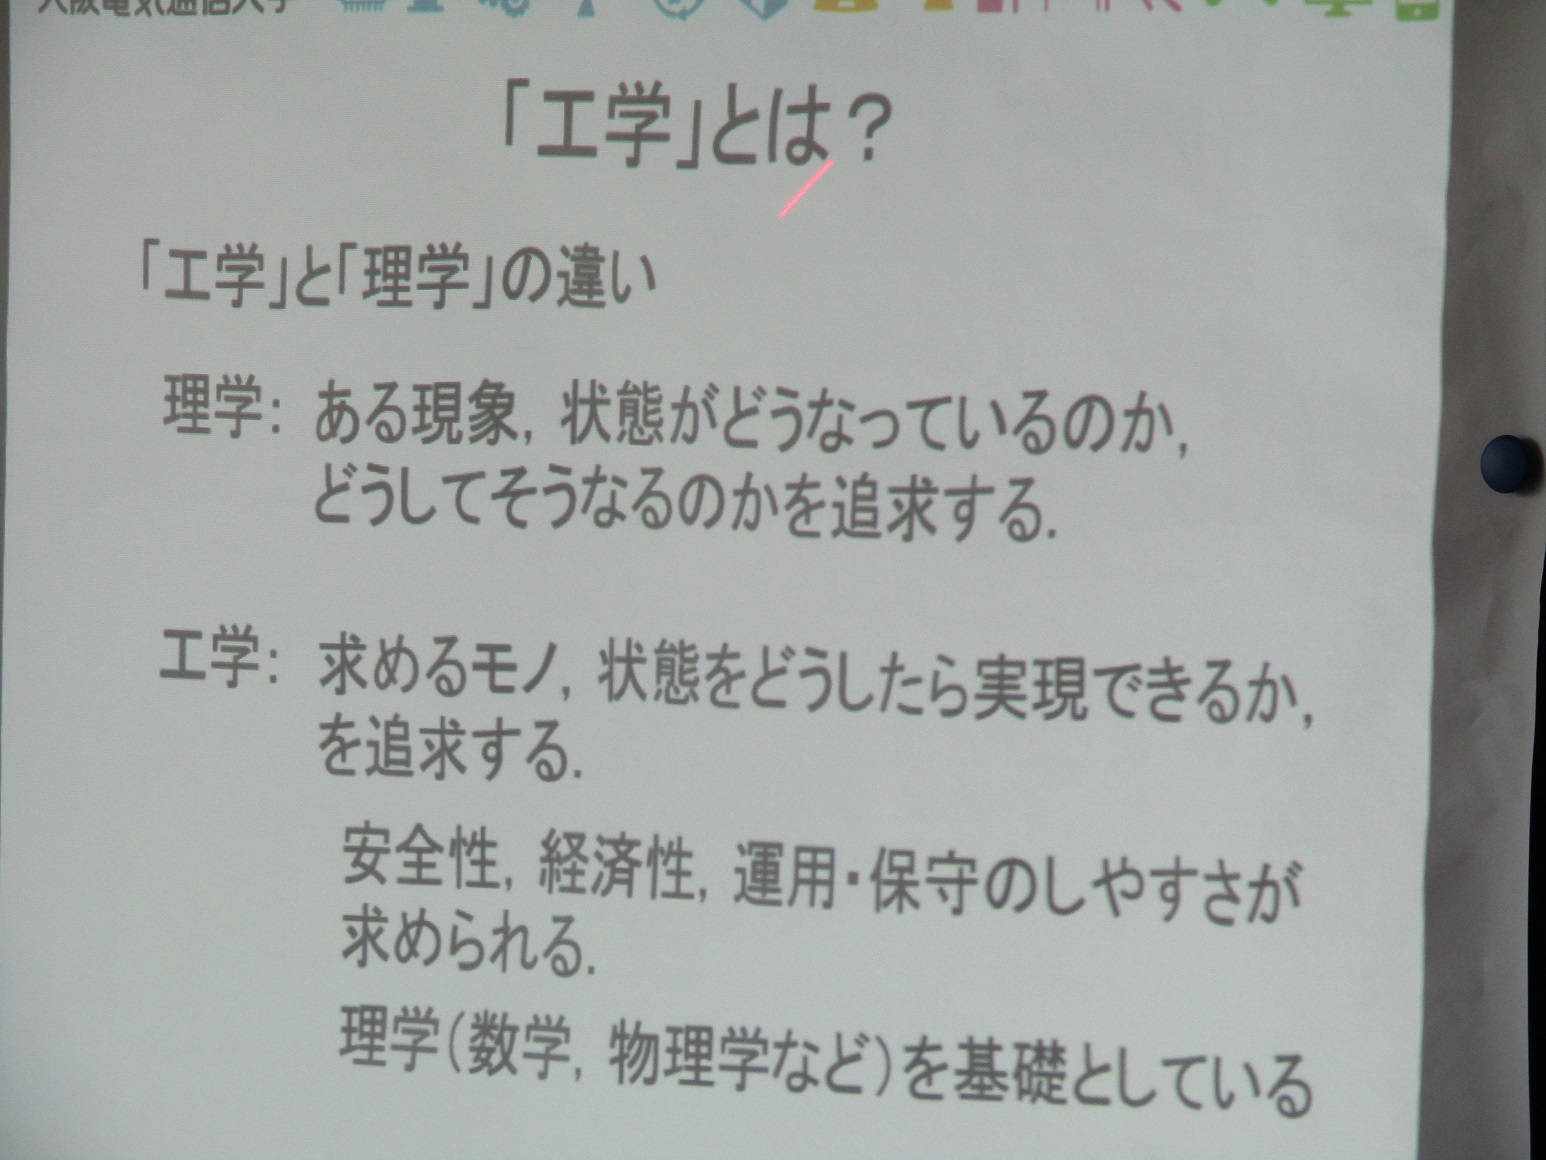 大阪電気通信大学
「工学」とは？
「工学」と「理学」の違い
理学: ある現象, 状態がどうなっているのか,
どうしてそうなるのかを追求する.
工学: 求めるモノ, 状態をどうしたら実現できるか,
を追求する.
安全性, 経済性, 運用・保守のしやすさが
求められる.
理学(数学, 物理学など)を基礎としている